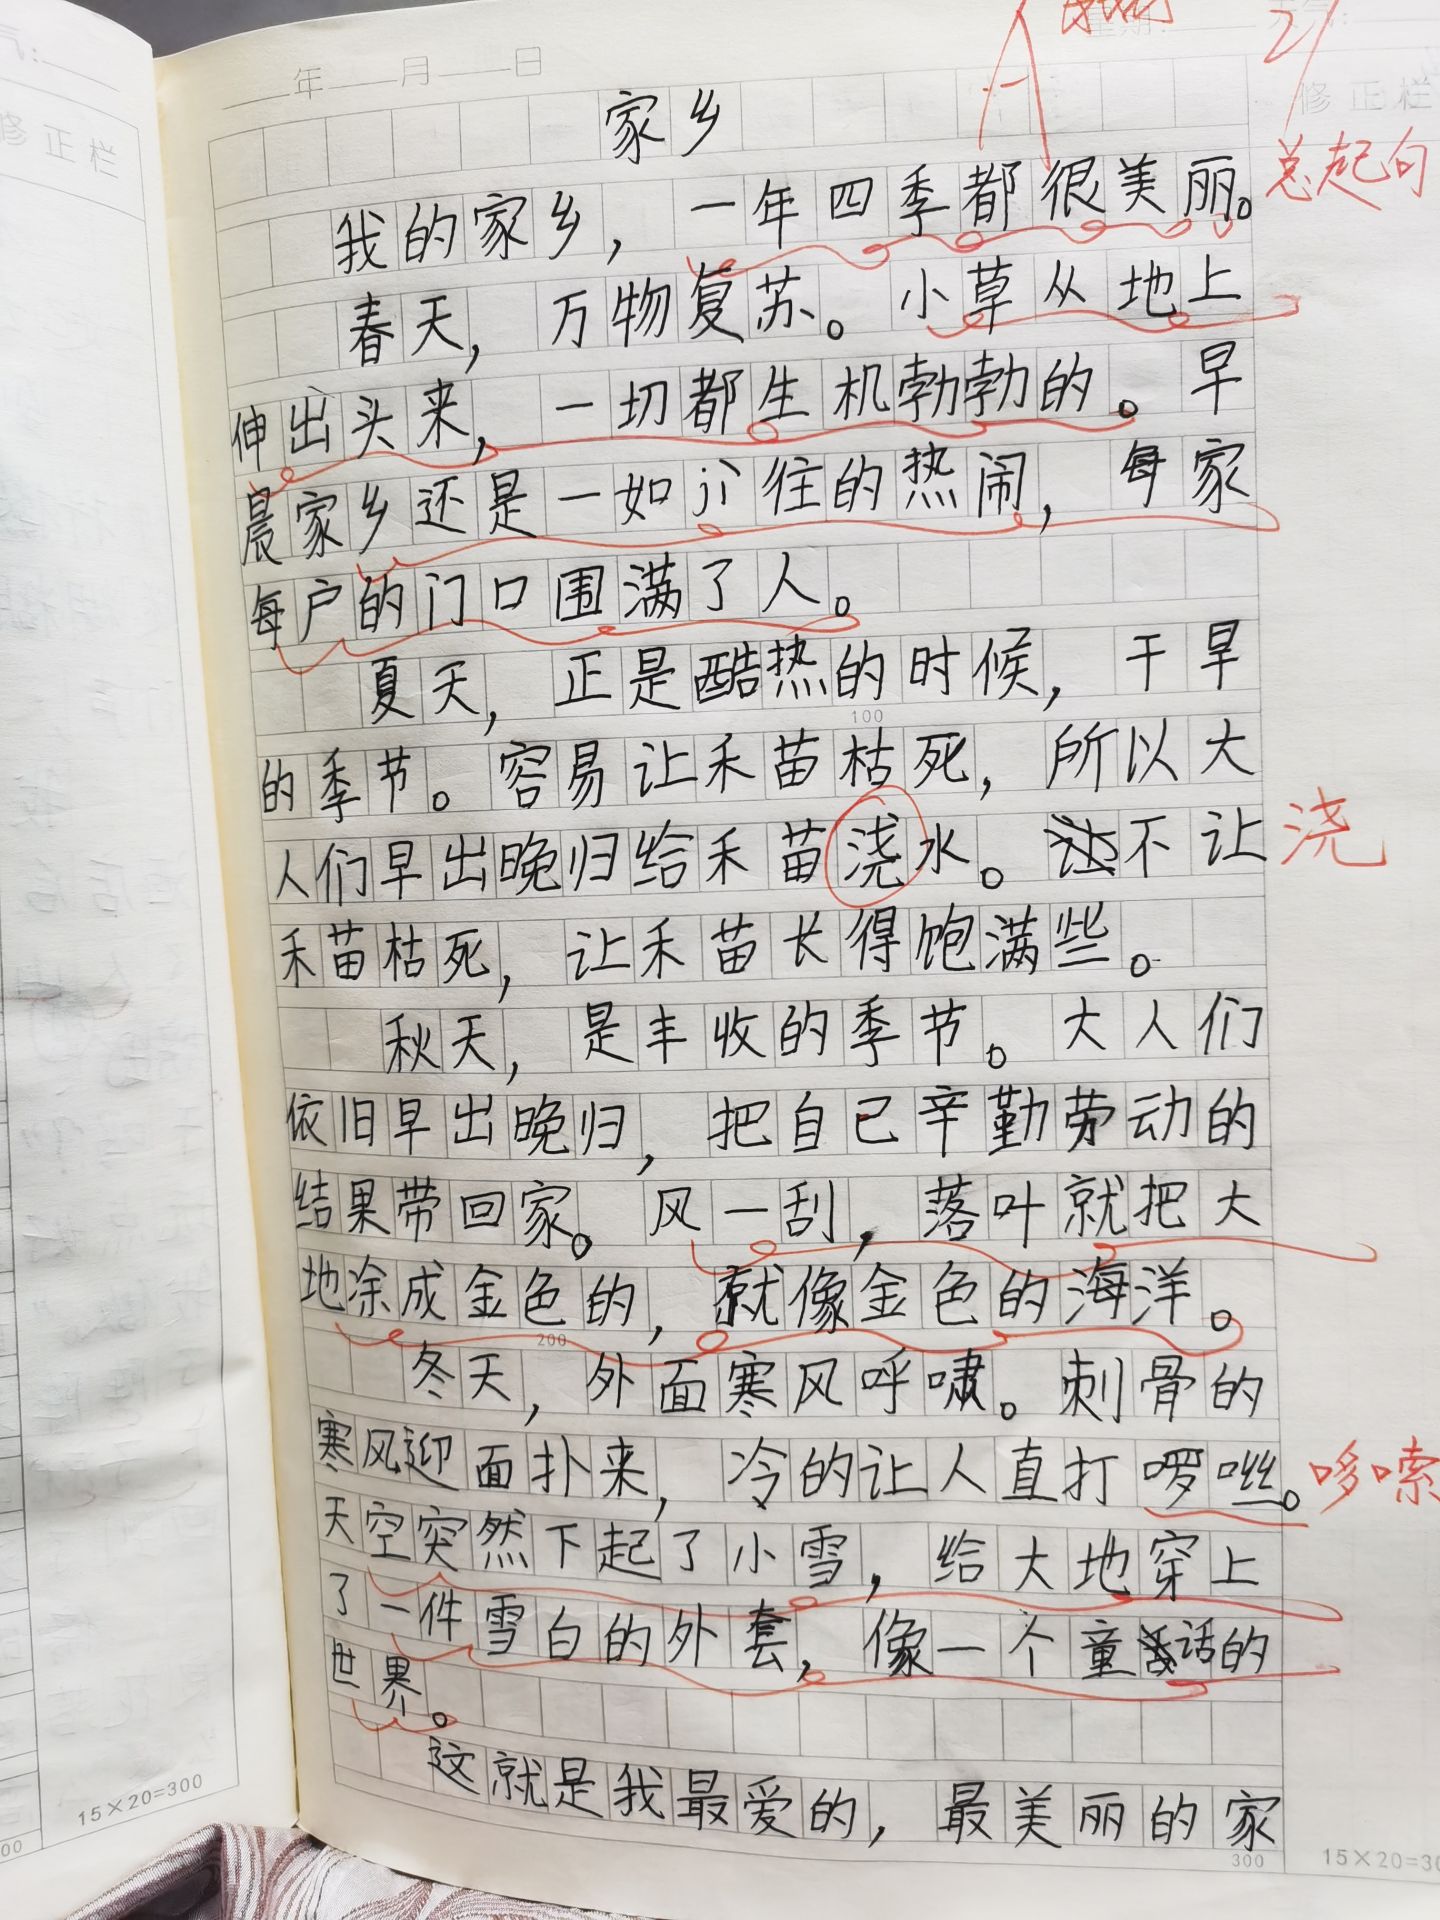 年 月 日
修正栏
修正栏
家乡
我的家乡，一年四季都很美丽。
总起句
春天，万物复苏。小草从地上
伸出头来，一切都生机勃勃的。早
晨家乡还是一如往的热闹，每家
每户的门口围满了人。
夏天，正是酷热的时候，干旱
100
的季节。容易让禾苗枯死，所以大
人们早出晚归给禾苗浇水。不让
浇
禾苗枯死，让禾苗长得饱满些。
秋天，是丰收的季节。大人们
依旧早出晚归，把自己辛勤劳动的
结果带回家。风一刮，落叶就把大
地涂成金色的，就像金色的海洋。
200
冬天，外面寒风呼啸。刺骨的
寒风迎面扑来，冷的让人直打啰嗦。
哆嗦
天空突然下起了小雪，给大地穿上
了一件雪白的外套，像一个童话的
世界。
这就是我最爱的，最美丽的家
300
15×20=300
15×20=30